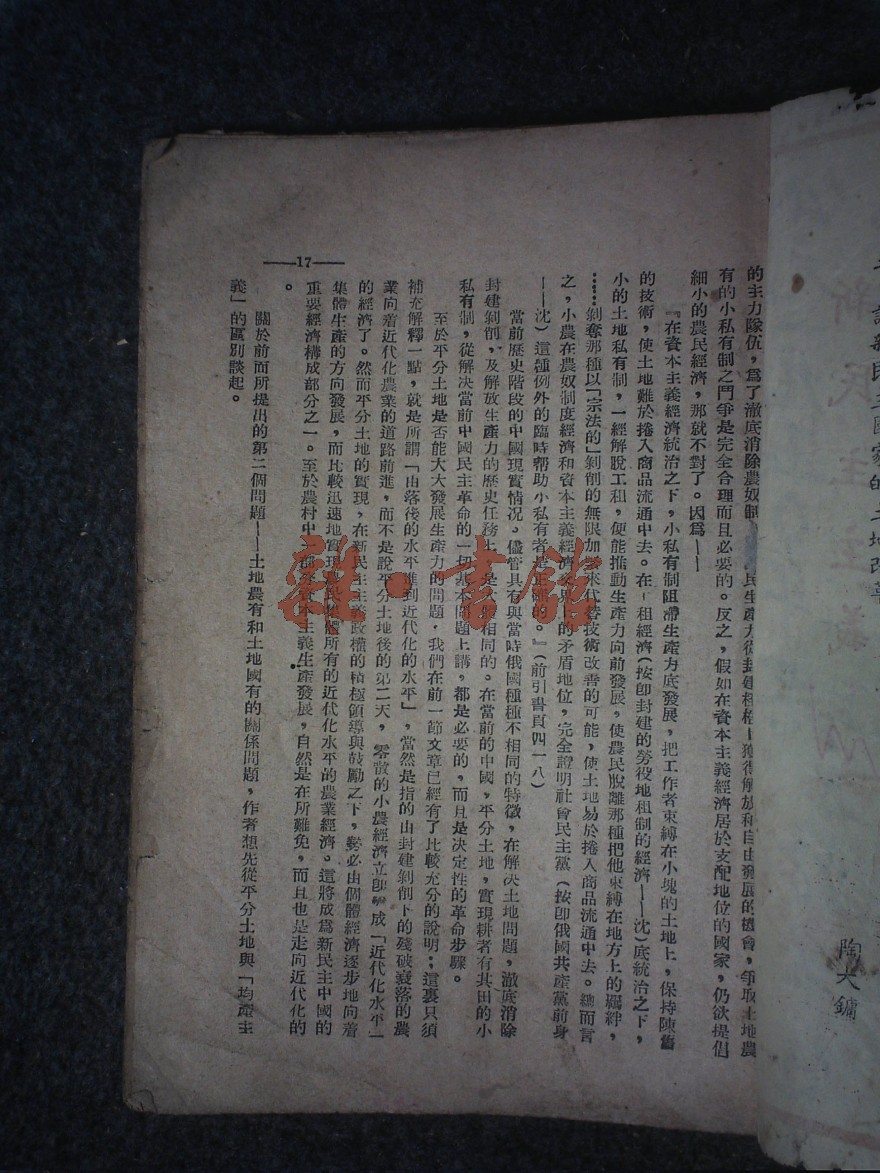 的主力隊伍,爲了澈底消除農奴制 民生產力從封建桎梏 獲得解放和自由發展的機會,爭取土地農
有的小私有制之鬥爭是完全合理而且必要的。反之,假如在資本主義經濟居於支配地位的國家,仍欲提倡
細小的農民經濟,那就不對了。因爲——
『在資本主義經濟統治之下,小私有制阻滯生產力底發展,把工作者束縛在小塊的土地上,保持陳舊
的技術,使土地難於捲入商品流通中去。在 租經濟(按卽封建的勞役地租制的經濟——沈)底統治之下,
小的土地私有制,一經解脫工租,便能推動生產力向前發展,使農民脫離那種把他束縛在地方上的羈絆,
……剝奪那種以「宗法的」剝削的無限加 來代替技術改善的可能,使土地易於捲入商品流通中去。總而言
之,小農在農奴制度經濟和資本主義經濟交界 的矛盾地位,完全證明社會民主黨(按卽俄國共產黨前身
——沈)這種例外的臨時帮助小私有者是正確的。』(前引書頁四一八)
當前歷史階段的中國現實情況。儘管具有與當時俄國種種不相同的特徵,在解决土地問題,澈底消除
封建剝削,及解放生產力的歷史任務上 是 相同的。在當前的中國,平分土地,實現耕者有其田的小
私有制,從解決當前中國民主革命的一切基本問題上講,都是必要的,而且是决定性的革命步驟。
至於平分土地是否能大大發展生產力的問題,我們在前一節文章已經有了比較充分的說明;這裏只須
補充解釋一點,就是所謂「由落後的水平 到近代化的水平」,當然是指的由封建剝削下的殘破衰落的農
業向着近代化農業的道路前進,而不是說平分土地後的第二天,零散的小農經濟立卽 成「近代化水平」
的經濟了。然而平分土地的實現,在新民主主義政權的積極領導與鼓勵之下,勢必由個體經濟逐步地向着
集體生產的方向發展,而比較迅速地實現 集體所有的近代化水平的農業經濟。這將成爲新民主中國的
重要經濟構成部分之一。至於農村中一部分資本主義生產發展,自然是在所難免,而且也是走向近代化的
。
關於前面所提出的第二個問題——土地農有和土地國有的關係問題,作者想先從平分土地與「均產主
義」的區別談起。
——17——
陶大鏞
雜·書館